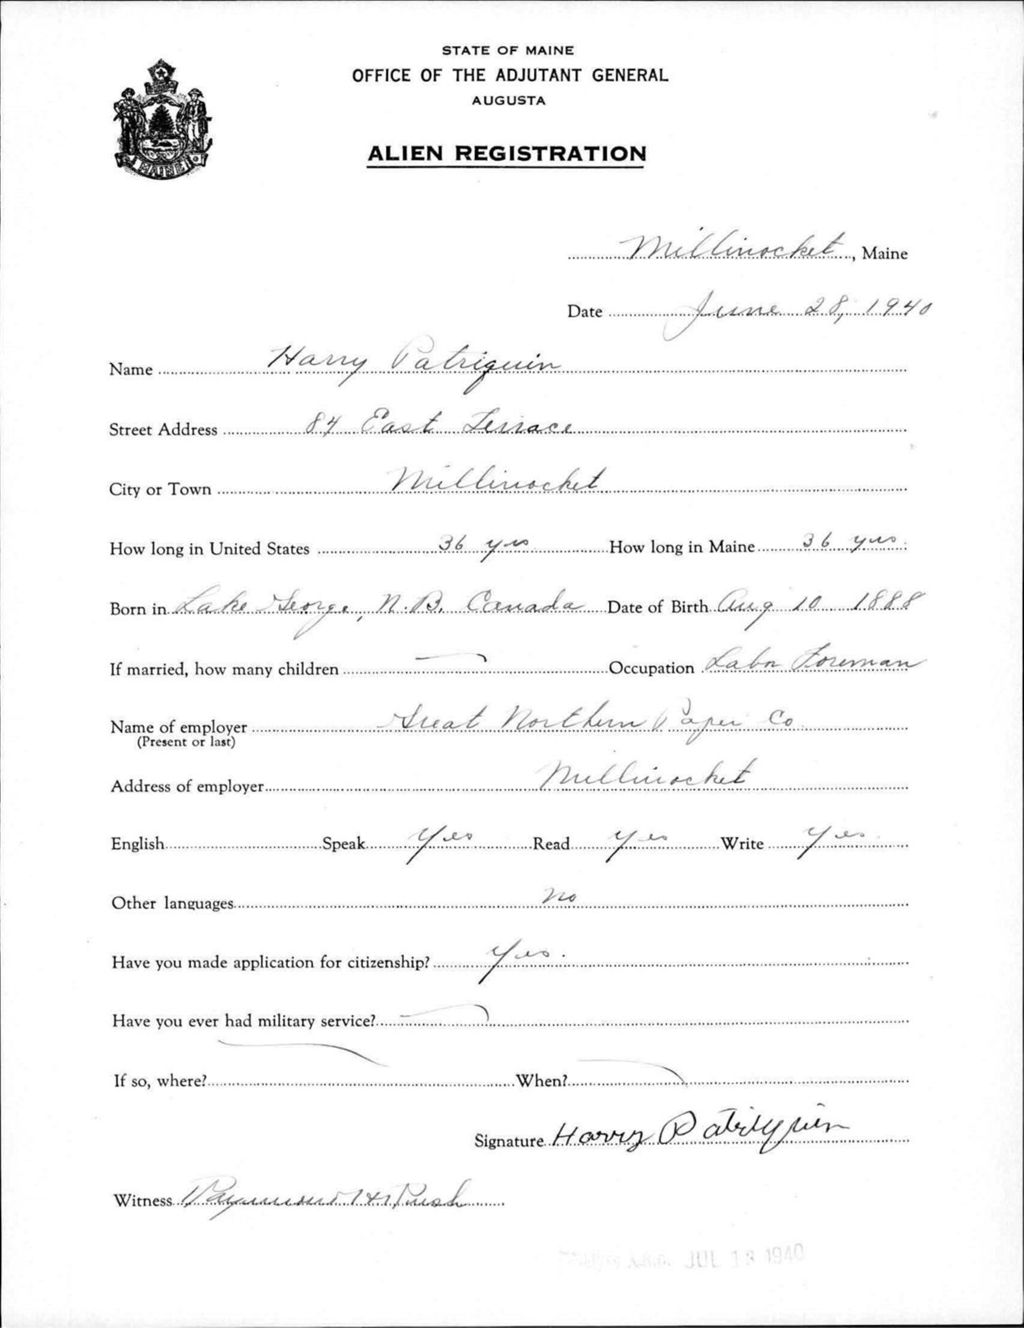 STATE OF MAINE
OFFICE OF THE ADJUTANT GENERAL
AUGUSTA
ALIEN REGISTRATION
MAINE
Millinocket, Maine
Date June 28, 1940
Name Harry Patriquin
Street Address 84 East Terrace
City or Town Millinocket
How long in United States 36 yrs How long in Maine 36 yrs.
Born in Lake George, N.B. Canada Date of Birth Aug 10 1888
If married, how many children — Occupation Labor Foreman
Name of employer Great Northern Paper Co
(Present or last)
Address of employer Millinocket
English Speak Yes Read Yes Write Yes
Other languages No
Have you made application for citizenship? Yes.
Have you ever had military service? —
If so, where? When?
Signature Harry Patriquin
Witness Raymond H Rush
JUL 13 1940